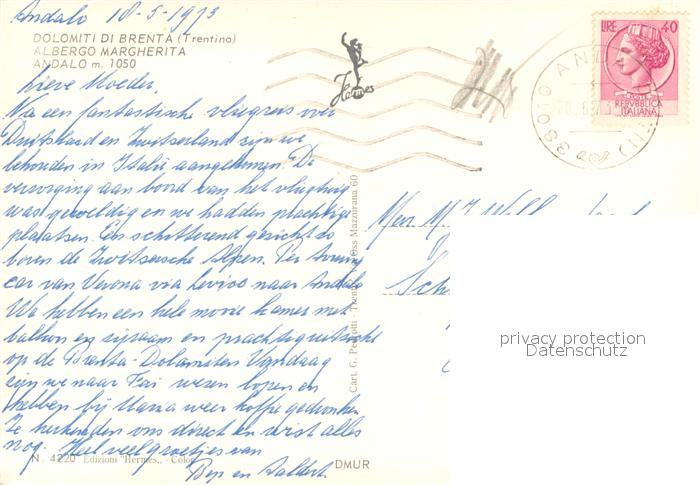 Andalo 18-5-1973
DOLOMITI DI BRENTA (Trentino)
ALBERGO MARGHERITA
ANDALO m. 1050
Lieve Moeder,
Na een fantastische vliegreis over
Duitsland en Zwitserland zijn we
behouden in Italië aangekomen. De
verzorging aan boord van het vliegtuig
was geweldig en we hadden prachtige
plaatsen. Een schitterend gezicht zo
boven de Zwitserse Alpen. Per
car van Verona via naar Andalo
We hebben een hele mooie kamer met
balkon en en prachtig uitzicht
op de Brenta-Dolomiten Vandaag
zijn we naar Fai wezen lopen en
hebben bij Maria weer koffie gedronken
Ze herkenden ons direct en wist alles
nog. Heel veel groetjes van
Bep en
N. 4220 Edizioni "Hermes" - Color
DMUR
Cart. G. Pedrotti - Trento - Oss Mazzurana 60
Hermes
LIRE 40
POSTE
REPVBBLICA
ITALIANA
38010
Mevr
privacy protection
Datenschutz